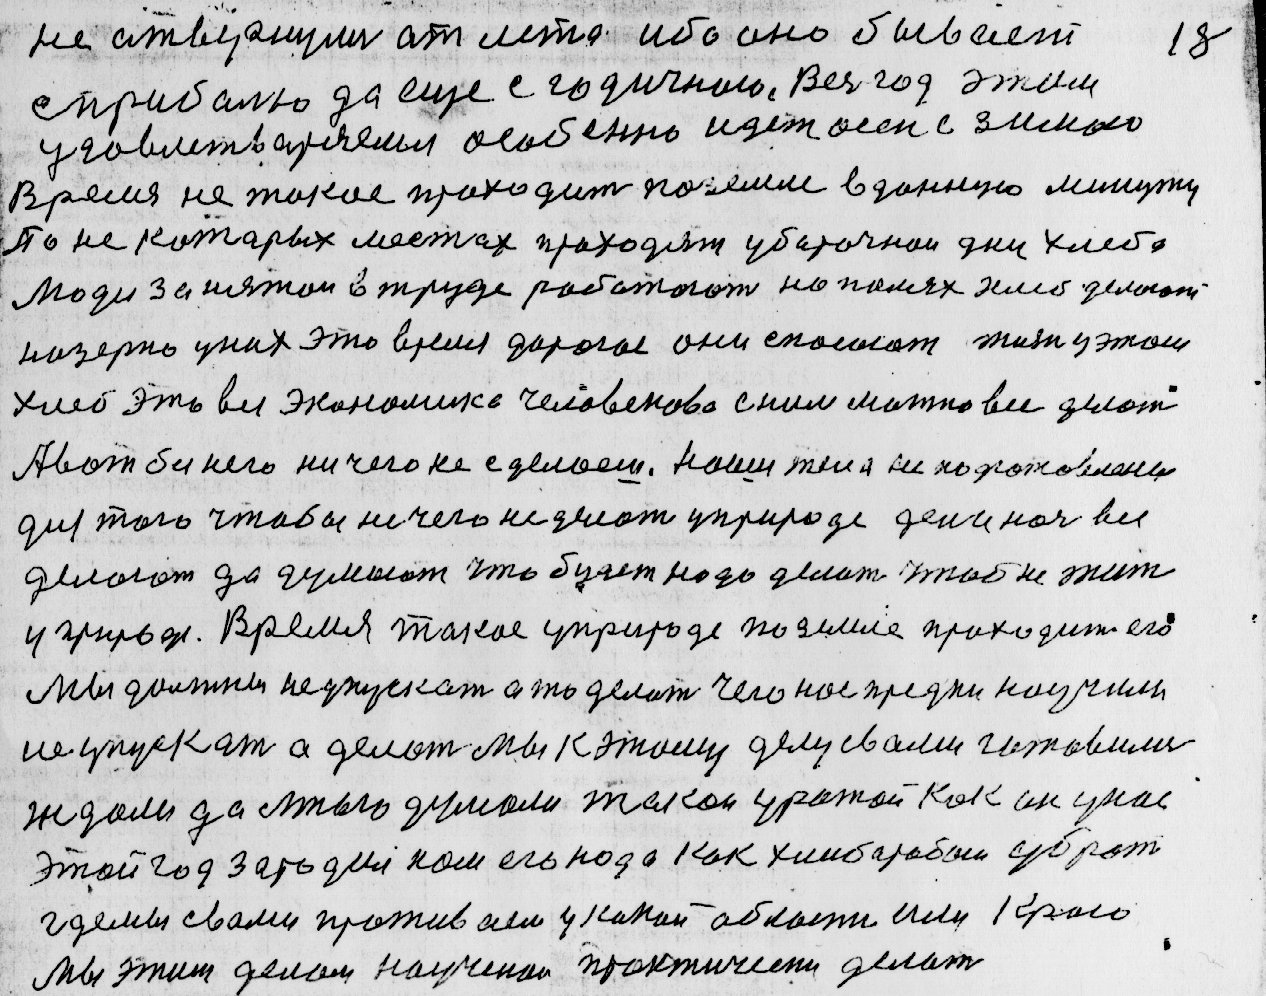 не отвернули от лета ибо оно бывает 18
с прибылью да еще с годичною. Вся год этим
удовлетваряемся особенно идет осен с зимою
Время не такое проходит по земле в данную минуту
По не которых местах проходят убарочнои дни хлеба
люди занятои в труде работают на полях хлеб делают
на зерно у них это время дорогое они спасают жизн у этом
хлеб это вся экономика человекова с ним можно все делат
А вот биз него ничего не сделаеш. Наши тела не подготовлены
для того чтобы ничего не делат у природе ден и ноч все
делают да думают что будет надо делат чтоб не жит
у природе. Время такое у природе по земле проходит его
Мы должны не упускат а то делат чего нас предки научили
не упускат а делат мы к этому делу с вами готовились
ждали да много думали такой уражай как он у нас
этой год зародил нам его надо как хлиба рабам убрат
где мы с вами проживаем у какой области или краю
мы этим делам научены практически делат